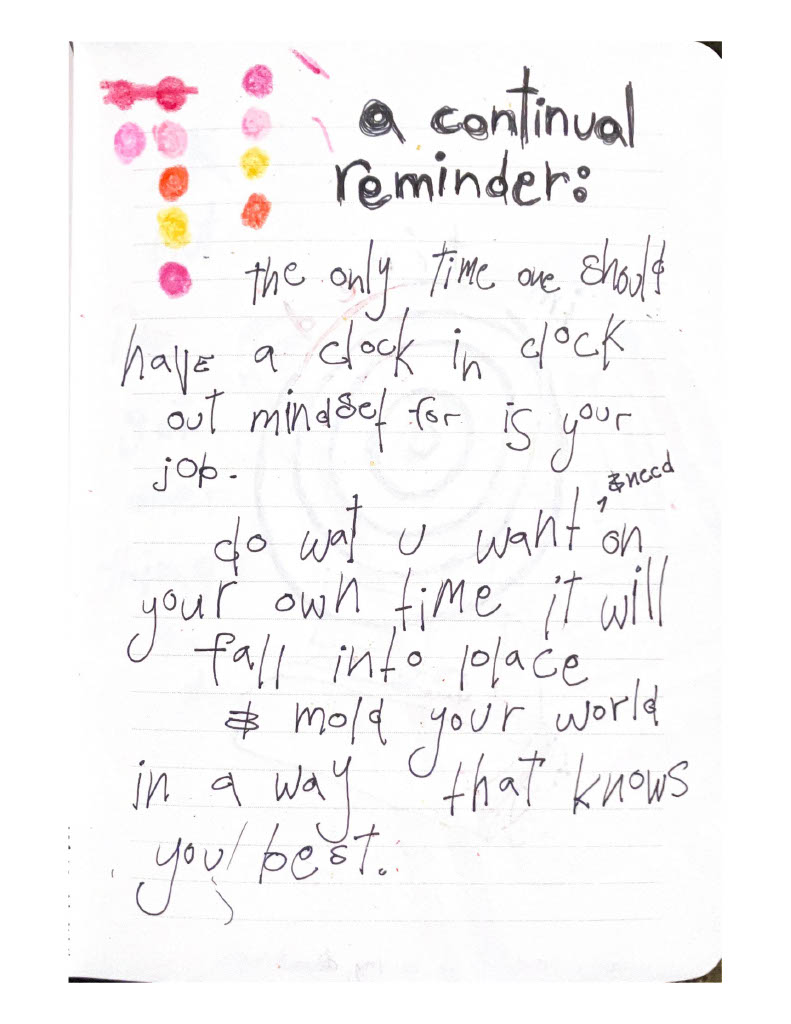 a continual
reminder:
the only time one should
have a clock in clock
out mindset for is your
job.
& need
do wat u want on
your own time it will
fall into place
& mold your world
in a way that knows
you best.